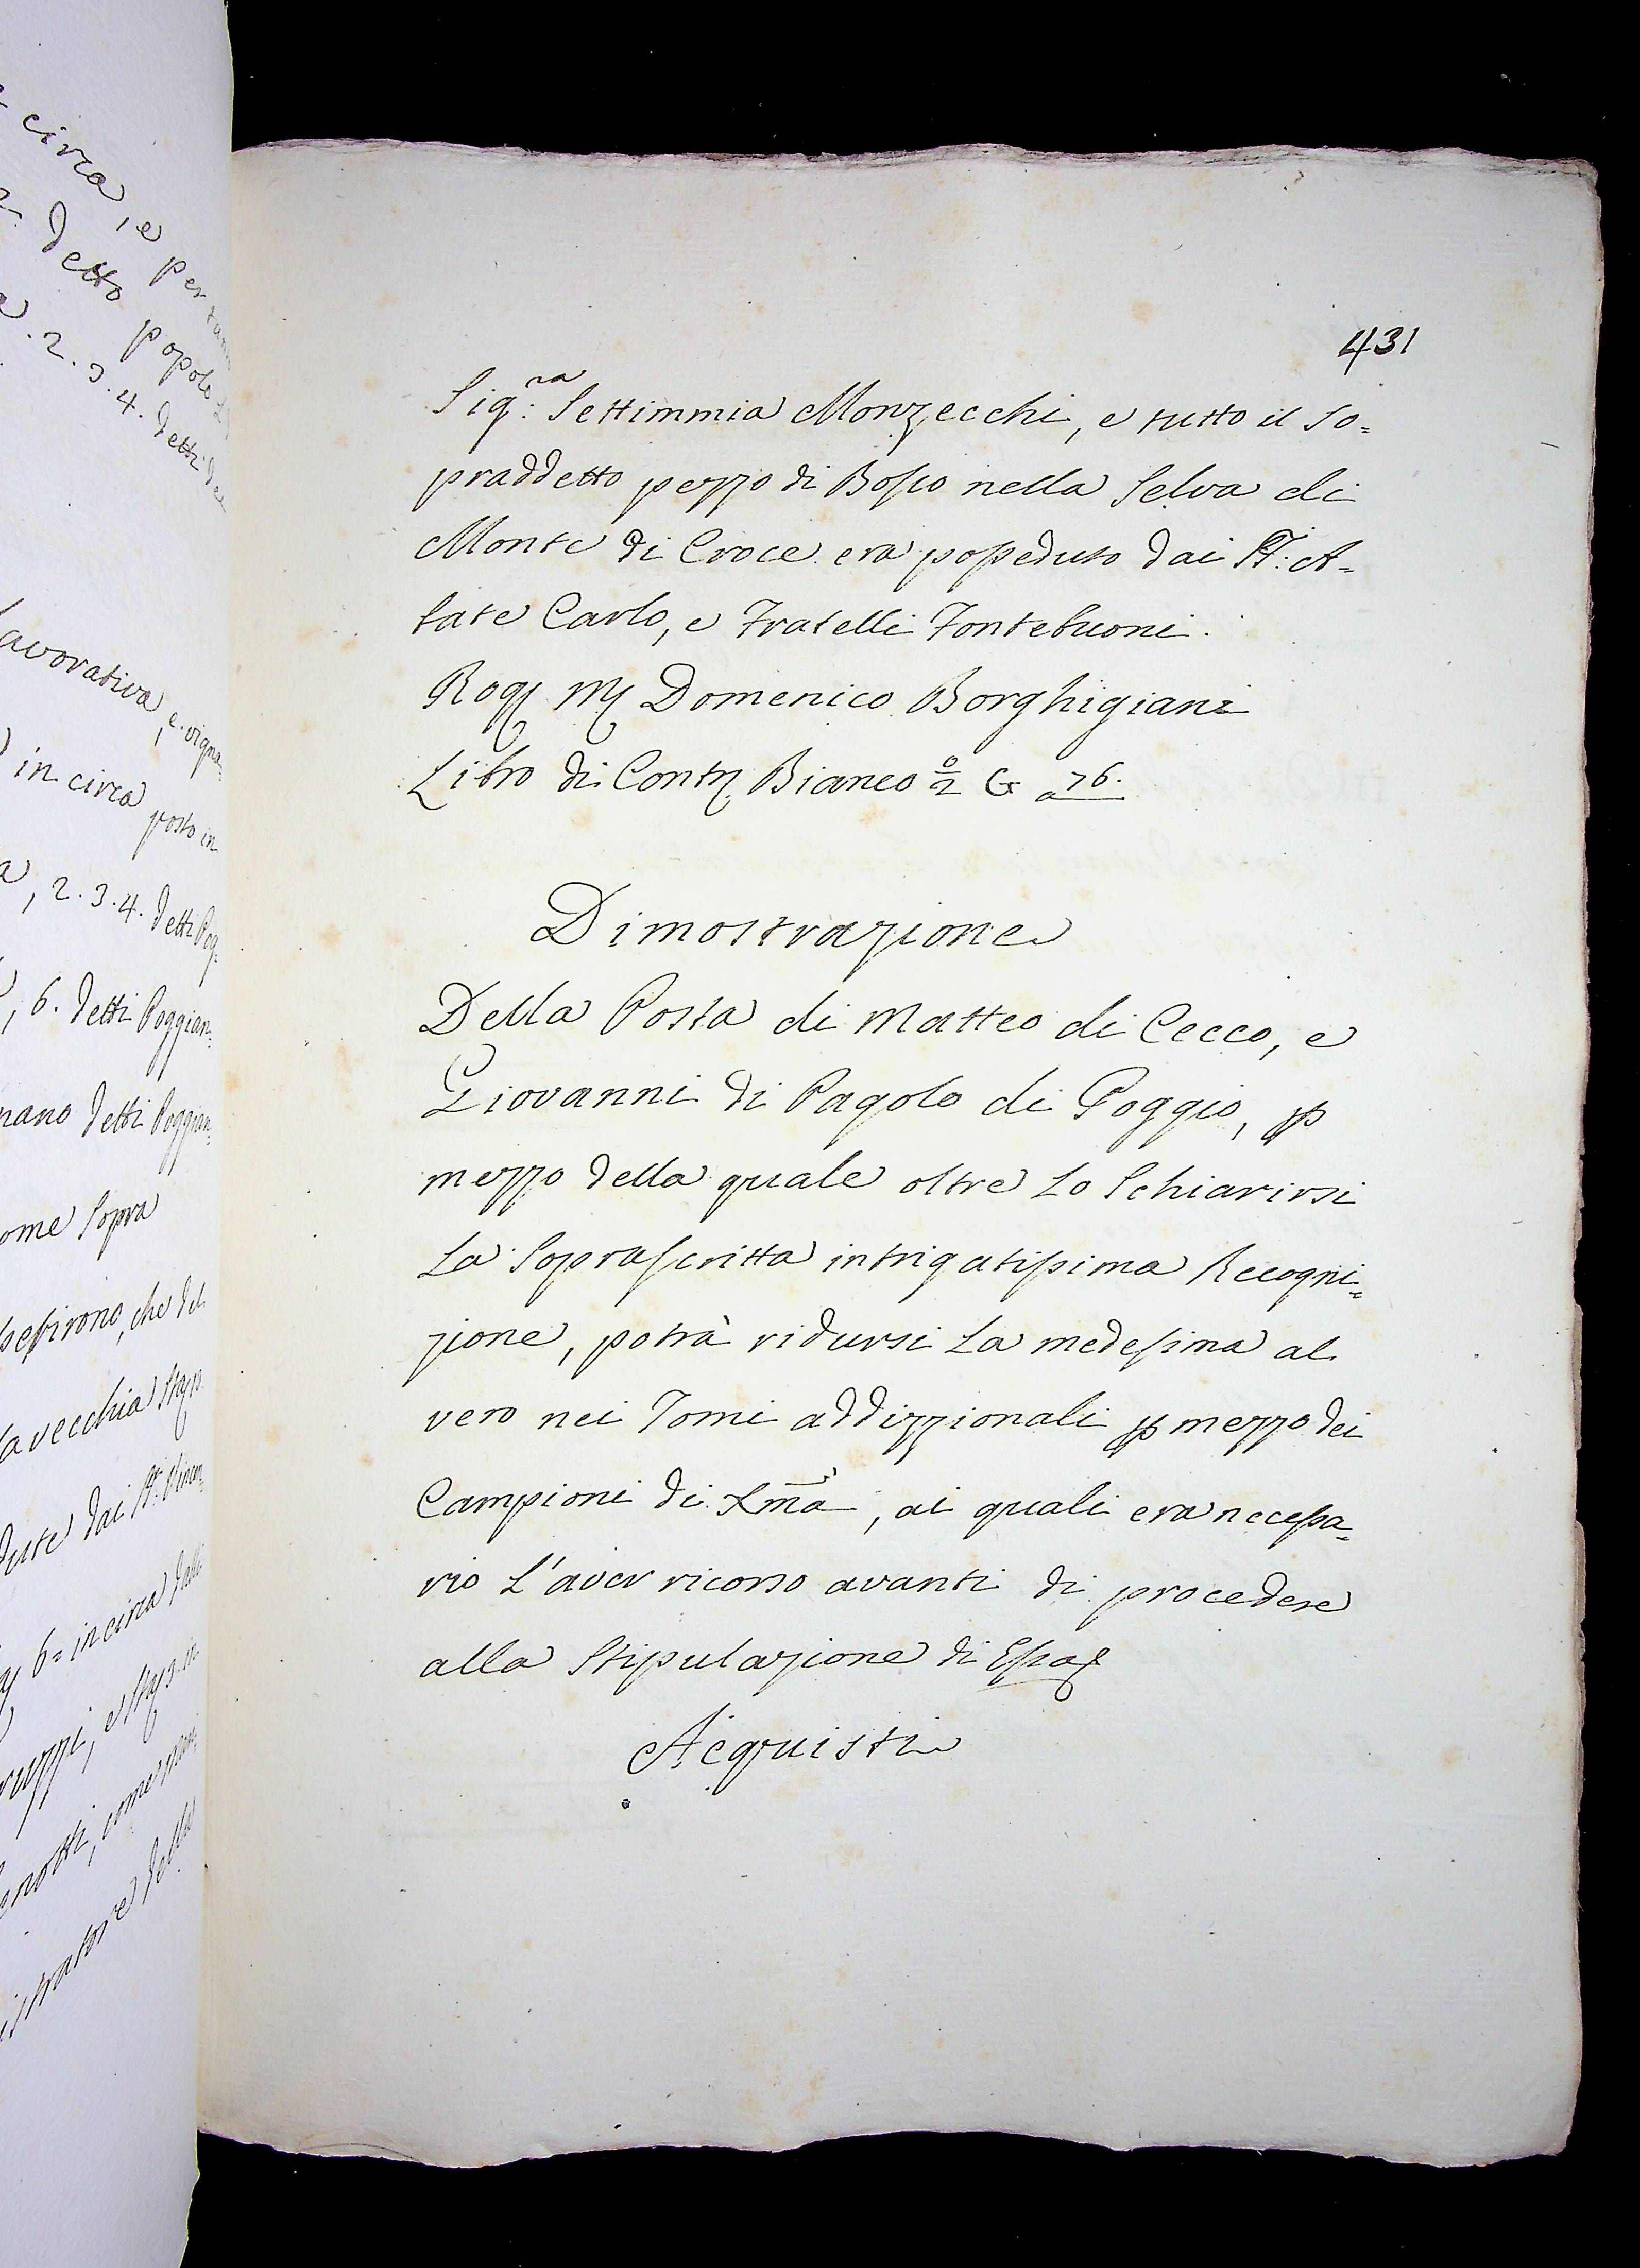 circa, e per
detto popolo
2. 3. 4. detti
lavorativa, e vigna=
in circa posto in
, 2. 3. 4. detti Pog=
, 6. detti Poggian=
detti Poggian=
ome sopra
che del
a vecchia
dai
6= in circa
come
della
431
Sig:ra Settimmia Monzecchi, e tutto il so=
praddetto pezzo di Bosco nella Selva di
Monte di Croce era posseduto dai SS:ri A=
bate Carlo, e Fratelli Fontebuoni.
Rog Domenico Borghigiani
Libro di Contri Bianco G a 76.
Dimostrazione
Della Posta di Matteo di Cecco, e
Giovanni di Pagolo di Poggio, p
mezzo della quale oltre lo Schiarirsi
la Soprascritta intrigatissima Recogni=
zione, potrà ridursi la medesima al
vero nei Tomi addizzionali p mezzo dei
Campioni di Xma, ai quali era necessa=
rio l'aver ricorso avanti di procedere
alla Stipulazione di Essa
Acquisti